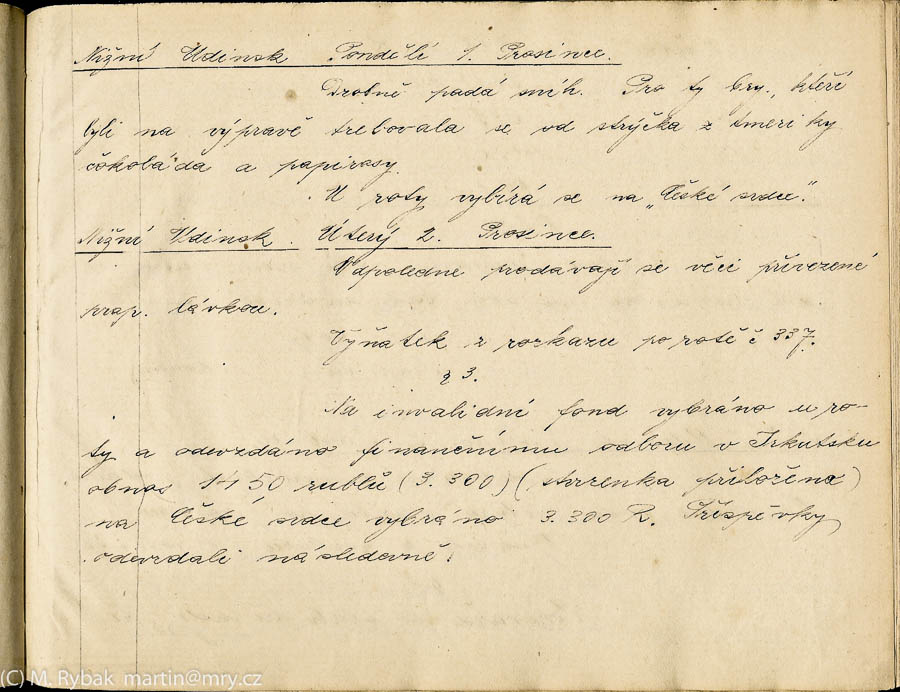 Nižní Udinsk Pondělí 1. Prosince.
Drobně padá sníh. Pro ty bry., kteří
byli na výpravě trebovala se od strýčka z Ameriky
čokoláda a papirosy.
U roty vybírá se na „České srdce".
Nižní Udinsk. Úterý 2. Prosince.
Odpoledne prodávají se věci přivezené
prap. Lávkou.
Výňatek z rozkazu po rotě č 337.
§ 3.
Na invalidní fond vybráno u ro-
ty a odevzdáno finančnímu odboru v Irkutsku
obnos 1450 rublů (3.300) (stvrzenka přiložena)
na České srdce vybráno 3.300 R. Příspěvky
odevzdali následovně:
(C) M. Rybak martin@mry.cz